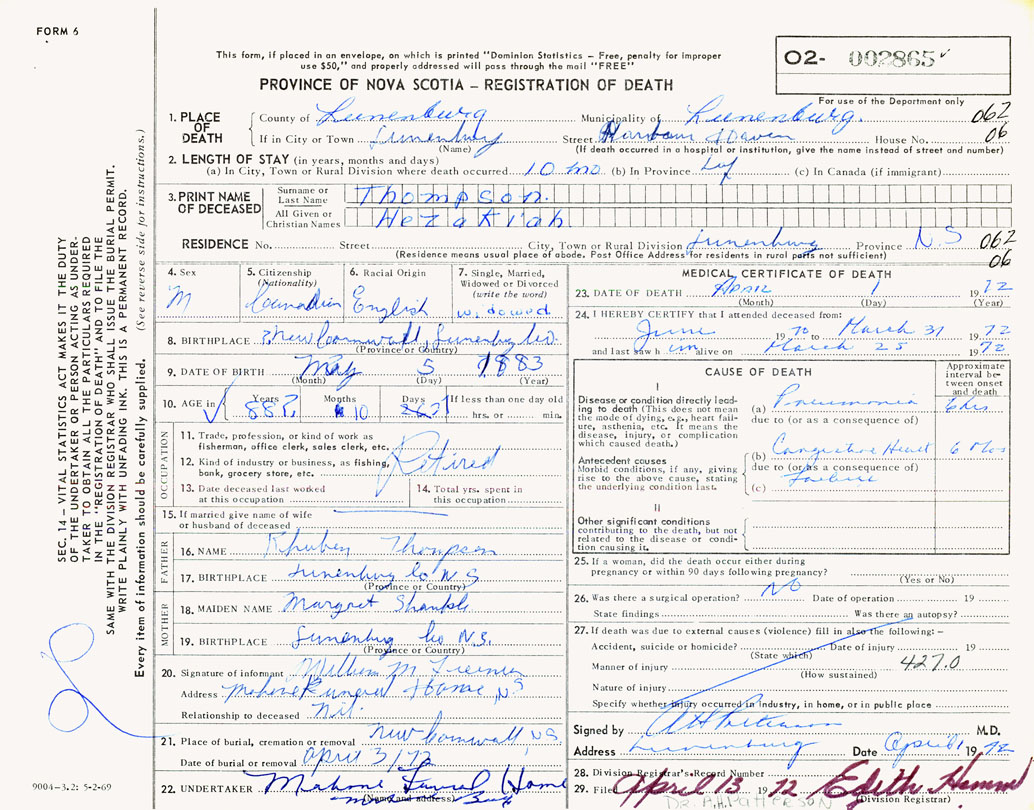 FORM 6
This form, if placed in an envelope, on which is printed "Dominion Statistics – Free, penalty for improper
use $50," and properly addressed will pass through the mail "FREE"
O2- 002865
PROVINCE OF NOVA SCOTIA – REGISTRATION OF DEATH
For use of the Department only
1. PLACE OF DEATH
County of Lunenburg Municipality of Lunenburg. 062
If in City or Town Lunenburg Street Harbour Haven House No. 06
(Name) (If death occurred in a hospital or institution, give the name instead of street and number)
2. LENGTH OF STAY (in years, months and days)
(a) In City, Town or Rural Division where death occurred 10 mo (b) In Province Life (c) In Canada (if immigrant)
3. PRINT NAME OF DECEASED
Surname or Last Name Thompson.
All Given or Christian Names Hezakiah
RESIDENCE No. Street City, Town or Rural Division Lunenburg Province N.S 062
(Residence means usual place of abode. Post Office Address for residents in rural parts not sufficient) 06
4. Sex M
5. Citizenship (Nationality) Canadian
6. Racial Origin English
7. Single, Married, Widowed or Divorced (write the word) widowed
8. BIRTHPLACE New Cornwall, Lunenburg Co.
(Province or Country)
9. DATE OF BIRTH May 5 1883
(Month) (Day) (Year)
10. AGE in Years 88 Months 10 Days If less than one day old
hrs. or min.
OCCUPATION
11. Trade, profession, or kind of work as
fisherman, office clerk, sales clerk, etc. Retired
12. Kind of industry or business, as fishing,
bank, grocery store, etc.
13. Date deceased last worked
at this occupation
14. Total yrs. spent in
this occupation
15. If married give name of wife
or husband of deceased
FATHER
16. NAME Rhuben Thompson
17. BIRTHPLACE Lunenburg Co N S
(Province or Country)
MOTHER
18. MAIDEN NAME Margret
19. BIRTHPLACE Lunenburg Co N.S.
(Province or Country)
20. Signature of informant William M
Address Mahone Funeral Home, N S
Relationship to deceased Nil.
21. Place of burial, cremation or removal New Cornwall, NS
Date of burial or removal April 3/72
22. UNDERTAKER Mahone Funeral Home
(Name and address) Mahone Bay
MEDICAL CERTIFICATE OF DEATH
23. DATE OF DEATH April 1 1972
(Month) (Day) (Year)
24. I HEREBY CERTIFY that I attended deceased from:
June 1970 to March 31 1972
and last saw him alive on March 25 1972
CAUSE OF DEATH
Approximate interval between onset and death
I
Disease or condition directly lead-
ing to death (This does not mean
the mode of dying, e.g., heart fail-
ure, asthenia, etc. It means the
disease, injury, or complication
which caused death.)
(a) Pneumonia
due to (or as a consequence of)
Antecedent causes
Morbid conditions, if any, giving
rise to the above cause, stating
the underlying condition last.
(b) Congestive Heart 6 Mos
due to (or as a consequence of)
Failure
(c)
II
Other significant conditions
contributing to the death, but not
related to the disease or condi-
tion causing it.
25. If a woman, did the death occur either during
pregnancy or within 90 days following pregnancy?
(Yes or No)
26. Was there a surgical operation? NO Date of operation 19
State findings Was there an autopsy?
27. If death was due to external causes (violence) fill in also the following: –
Accident, suicide or homicide? Date of injury 19
(State which)
Manner of injury 427.0
(How sustained)
Nature of injury
Specify whether injury occurred in Industry, in home, or in public place
Signed by M.D.
Address Lunenburg Date April 1 1972
28. Division Registrar's Record Number
29. Filed April 13 1972 Edith
(Division Registrar)
SEC. 14 – VITAL STATISTICS ACT MAKES IT THE DUTY
OF THE UNDERTAKER OR PERSON ACTING AS UNDER-
TAKER TO OBTAIN ALL THE PARTICULARS REQUIRED
IN THE "REGISTRATION OF DEATH" AND TO FILE THE
SAME WITH THE DIVISION REGISTRAR WHO SHALL ISSUE THE BURIAL PERMIT.
WRITE PLAINLY WITH UNFADING INK. THIS IS A PERMANENT RECORD.
Every item of information should be carefully supplied. (See reverse side for instructions.)
9004–3.2: 5-2-69